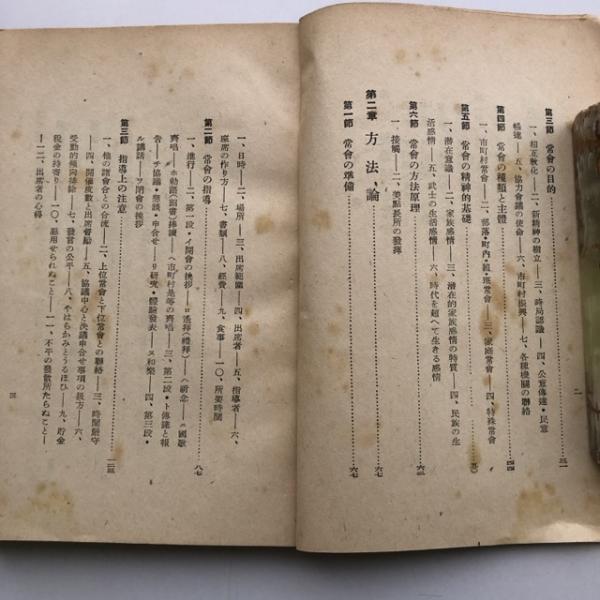 二
第三節 常會の目的
一、相互敎化――二、新精神の樹立――三、時局認識――四、公意傳達・民意
暢達――五、協力會議の使命――六、市町村振興――七、各種機關の聯絡
三一
第四節 常會の種類と主體
一、市町村常會――二、部落・町內・組・班常會――三、家庭常會――四、特殊常會
四四
第五節 常會の精神的基礎
一、潛在意識――二、家族感情――三、潛在的家族感情の特質――四、民族の生
活感情――五、武士の生活感情――六、時代を超へて生きる感情
五〇
第六節 常會の方法原理
一、接觸――二、美點長所の發揮
六三
第二章 方法論
六七
第一節 常會の準備
六七
一、日時――二、場所――三、出席範圍――四、出席者――五、指導者――六、
座席の作り方――七、書類――八、經費――九、食事――一〇、所要時間
第二節 常會の指導
八七
一、進行――二、第一段・イ開會の挨拶――ロ遙拜(禮拜)――ハ祈念――ニ國歌
齊唱――ホ勅語(詔書)捧讀――ヘ市町村是等の齊唱――三、第二段・ト傳達と報
告――チ協議・懇談・申合せ――リ硏究・體驗發表――ヌ和樂――四、第三段・
ル講話――ヲ閉會の挨拶
第三節 指導上の注意
一二三
一、他の諸會合との合流――二、上位常會と下位常會との聯絡――三、時間嚴守
――四、開催度數と出席督勵――五、協議中心と決議申合せ事項の扱方――六、
受動的傾向排除――七、發言の公平――八、やはらかみとうるほひ――九、貯金
稅金の持寄り――一〇、濫用せられぬこと――一一、不平の發散所たらぬこと―
―一二、出席者の心得
四